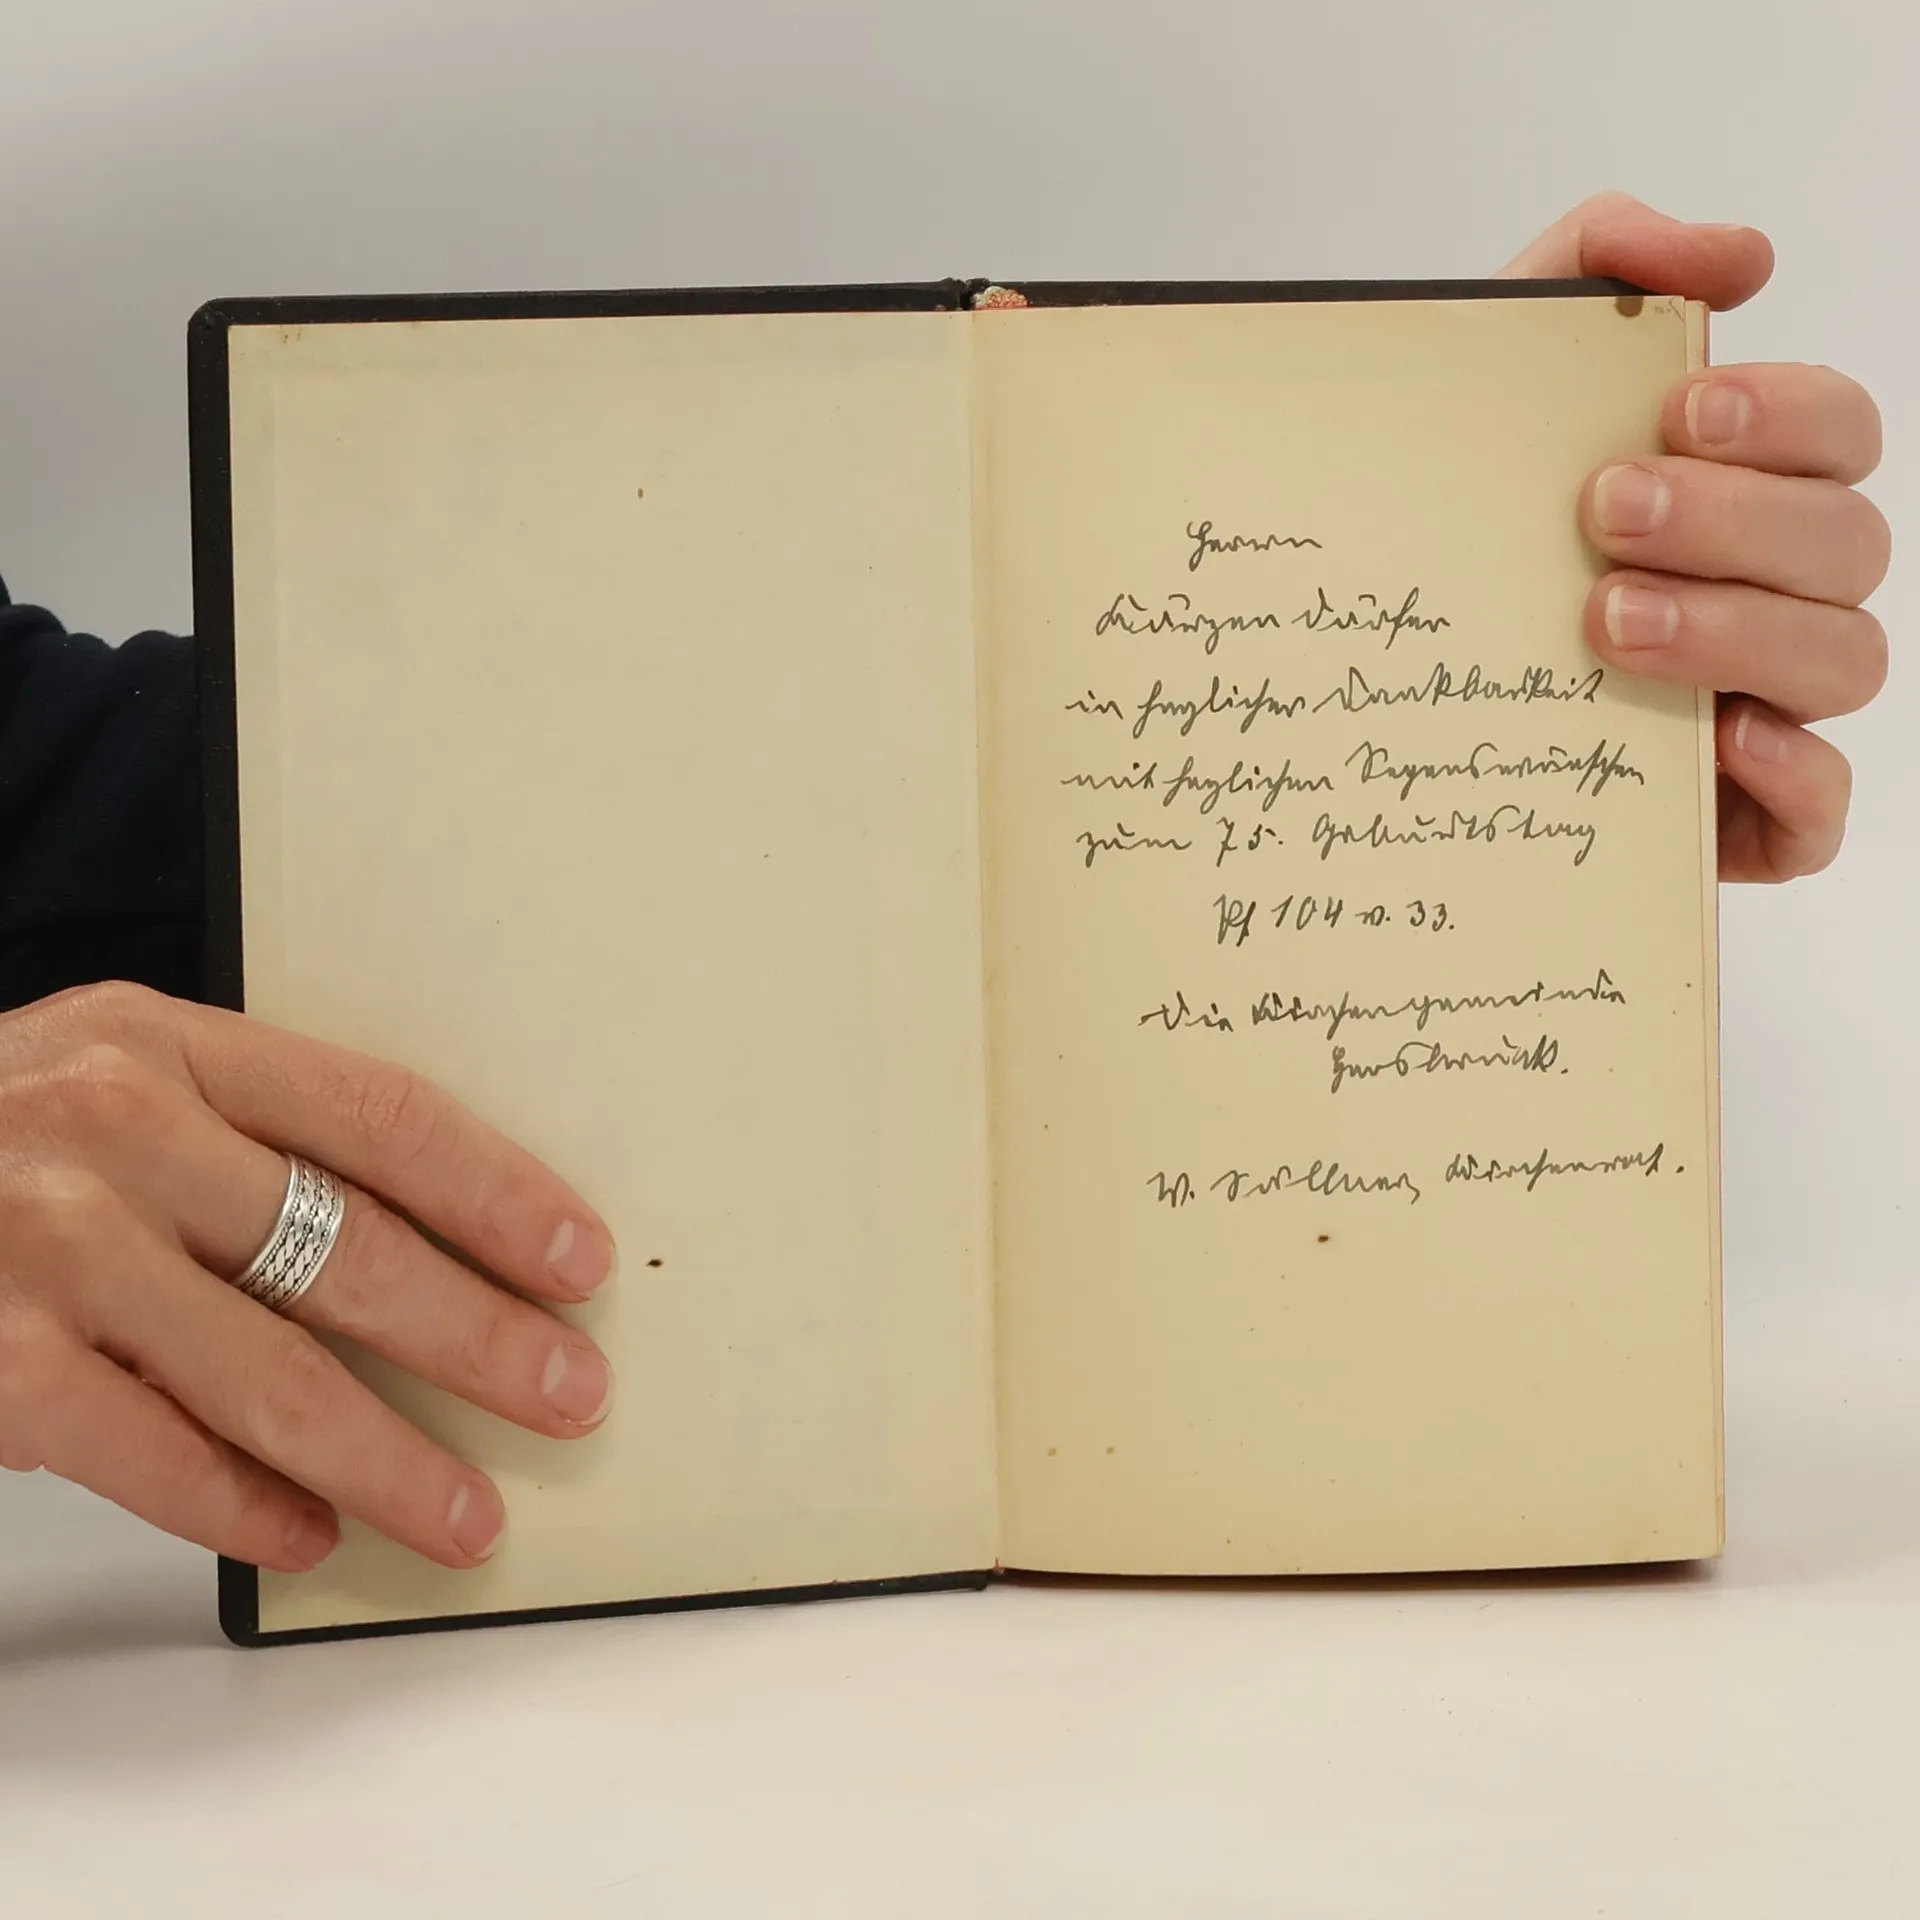 Herrn
Kürzendörfer
in herzlicher Dankbarkeit
mit herzlichen Segenswünschen
zum 75. Geburtstag
Pf 104 v. 33.
Die Kirchengemeinde
Hersbruck.
W. Sollner, Kirchenrat.